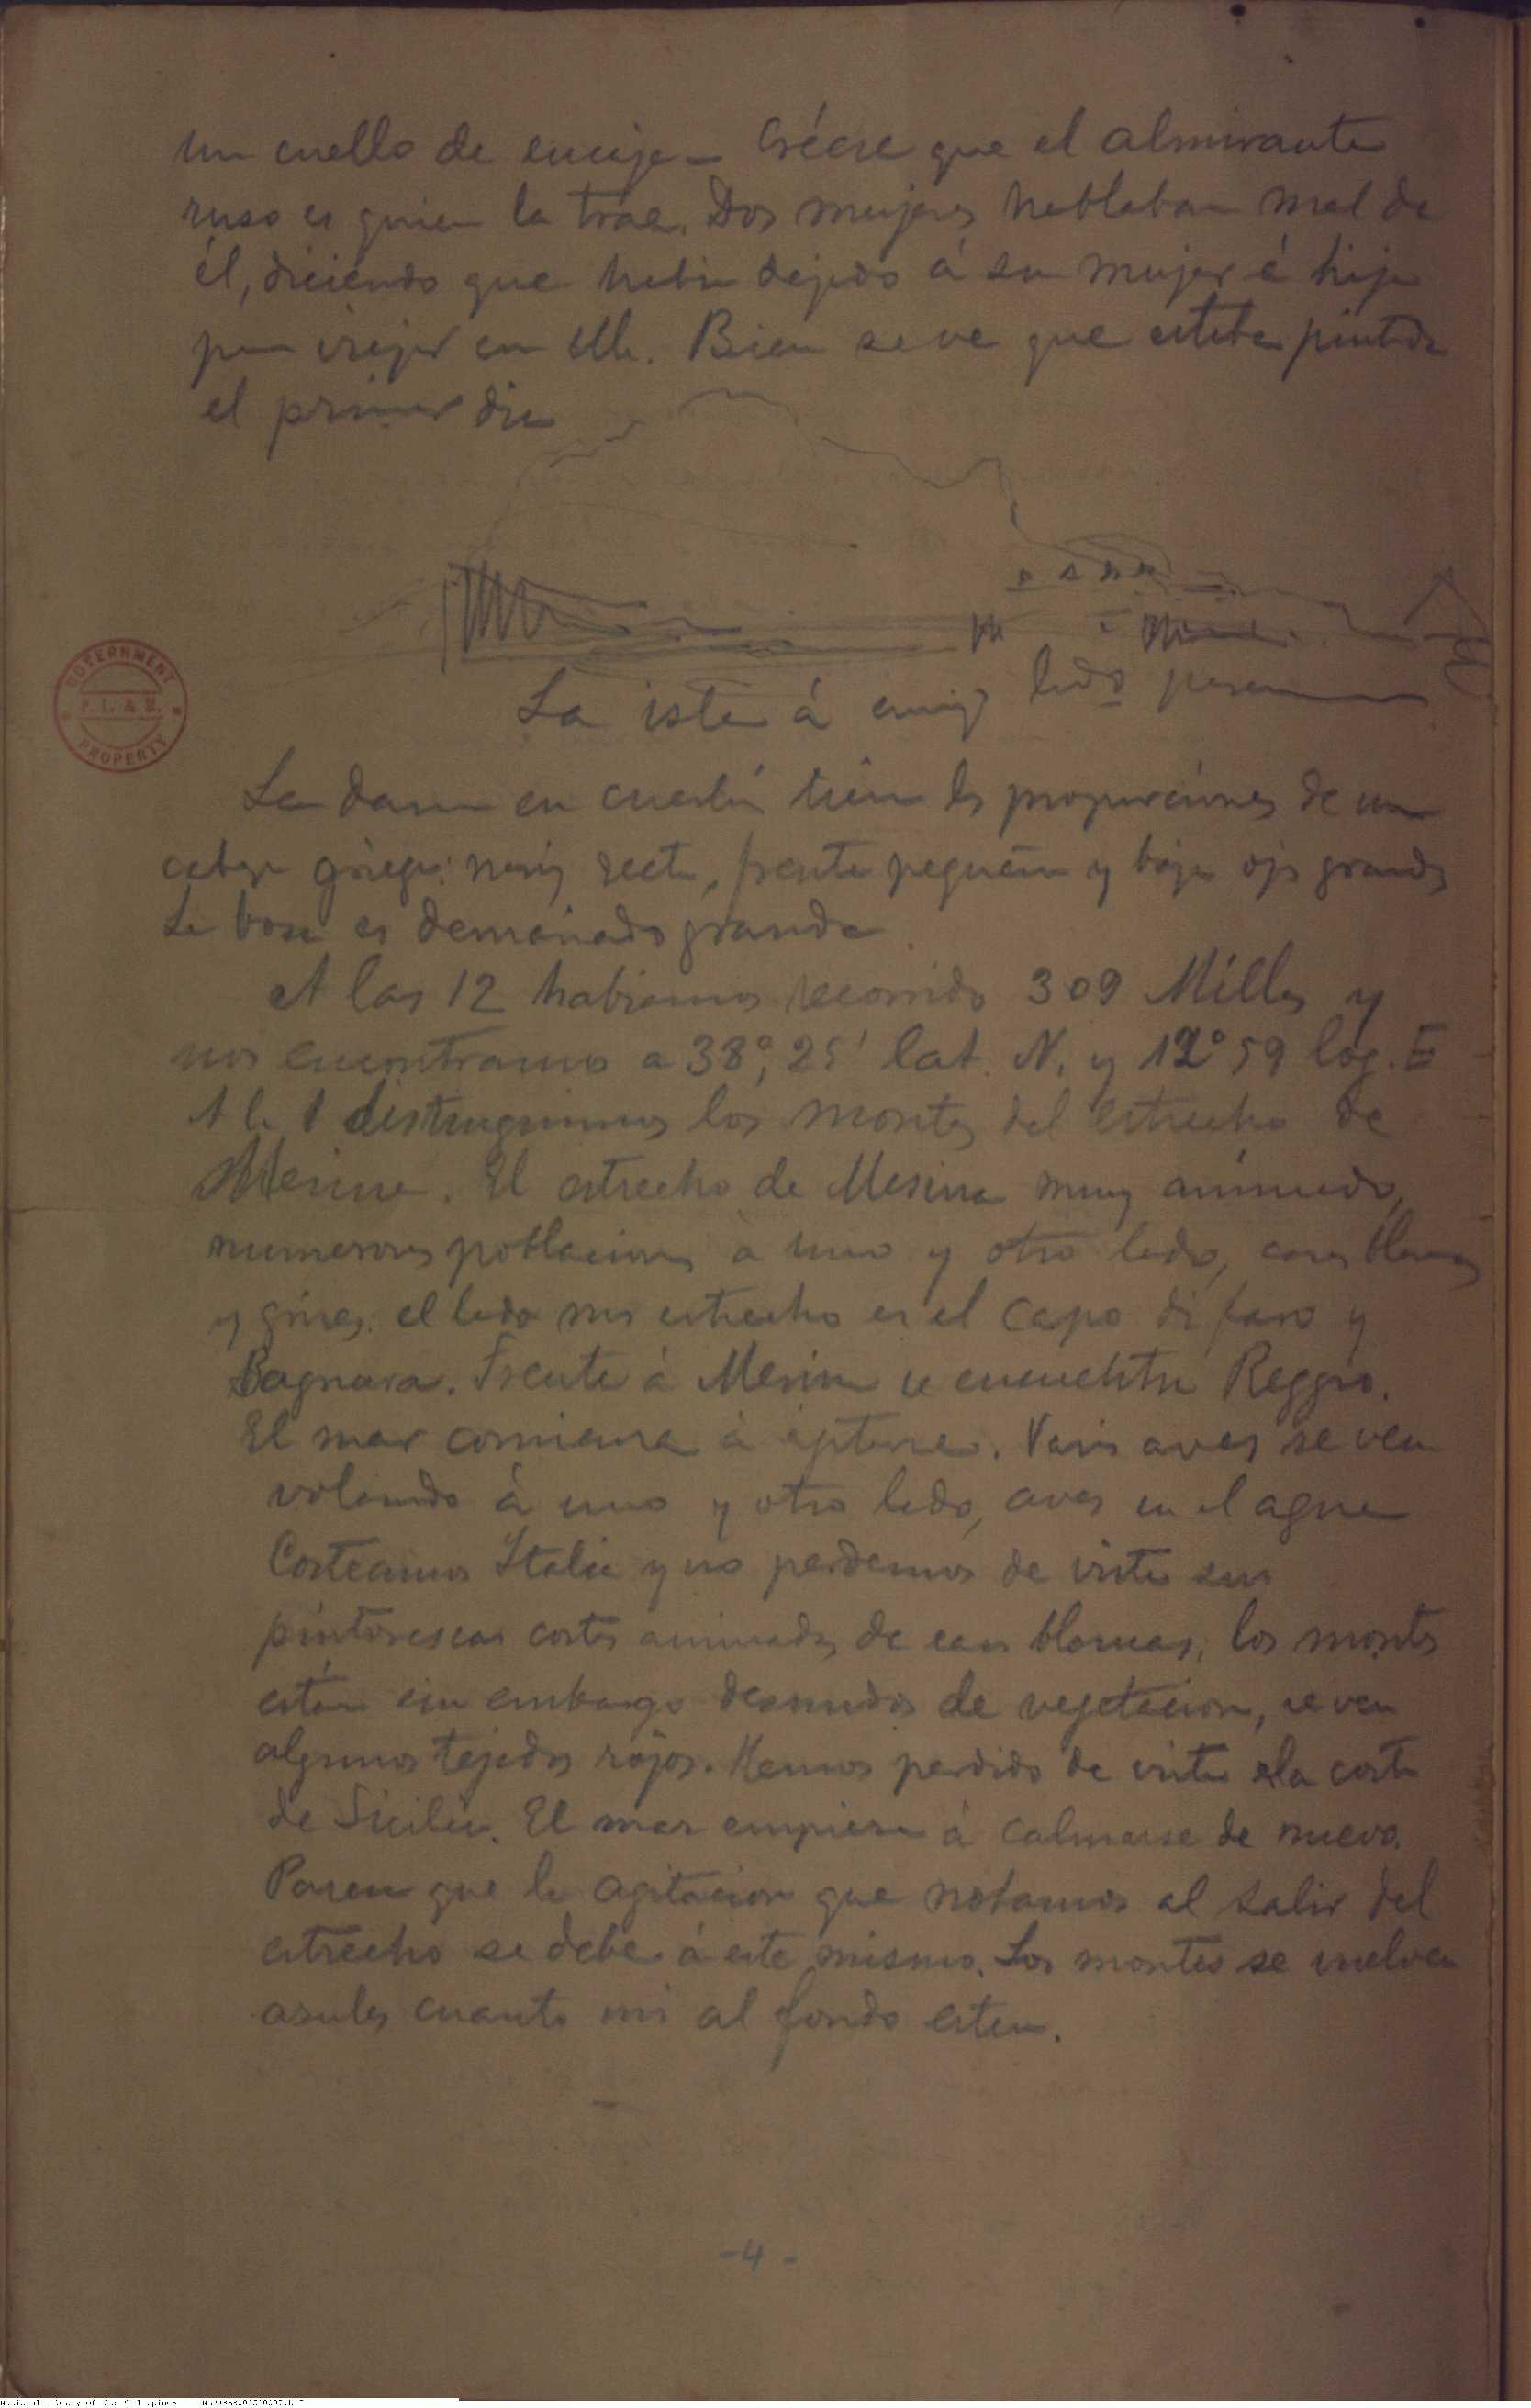 un cuello de encaje – Créese que el almirante
ruso es quien la trae. Dos mujeres hablaban mal de
él, diciendo que habia dejado á su mujer é hija
para viajar con ella. Bien se ve que estaba pintada
el primer dia
La isla á
lado
GOVERNMENT
P. L. & M.
PROPERTY
La dama en cuestión tiene las proporciones de una
cabeza griega: nariz recta, frente pequeña y baja ojos grandes
La boca es demasiado grande
A las 12 habiamos recorrido 309 Millas y
nos encontramos a 38°, 25' lat. N. y 12° 59 log. E
A la 1 distinguimos los montes del estrecho de
Mesina. El estrecho de Mesina muy animado,
numerosas poblaciones á uno y otro lado, casas blancas
y grises: el lado mas estrecho es el Capo di faro y
Bagnara. Frente á Mesina se encuentra Reggio.
El mar comienza á agitarse. Varias aves se ven
volando á uno y otro lado, aves en el agua
Costeamos Italia y no perdemos de vista sus
pintorescas costas animadas de casas blancas; los montes
están sin embargo desnudos de vegetacion, se ven
algunos tejados rojos. Hemos perdido de vista la costa
de Sicilia. El mar empieza á calmarse de nuevo.
Parece que la agitacion que notamos al salir del
estrecho se debe á este mismo. Los montes se vuelven
azules cuanto mas al fondo esten.
-4-